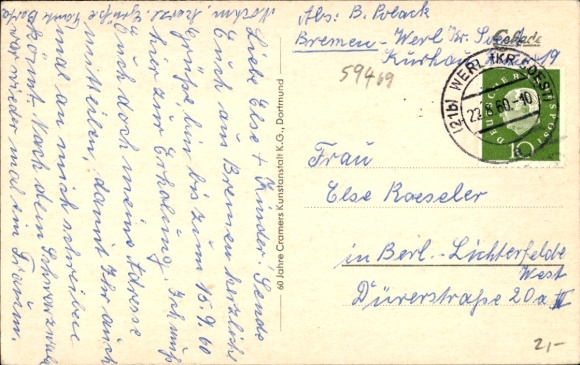 Nochm. herzl. Grüße
Tante Berta
Liebe Else + Kinder. Sende
Euch aus Bremen herzliche
Grüße bin bis zum 15.9.60
hier zur Erholung. Ich muß
Euch doch meine Adresse
mitteilen, damit Ihr auch
mal an mich schreiben
könnt. Nach dem Schwarzwald
war wieder mal ein Traum.
60 Jahre Cramers Kunstanstalt K.G., Dortmund
Abs: B. Polack
Bremen - Werl Kr. Soest
19
59469
(21b) WERL (KR SOEST)
22.8.60.-10
DEUTSCHE BUNDESPOST
10
Frau
Else Roeseler
in Berl.-Lichterfelde
West
Dürerstraße 20a III
2,-